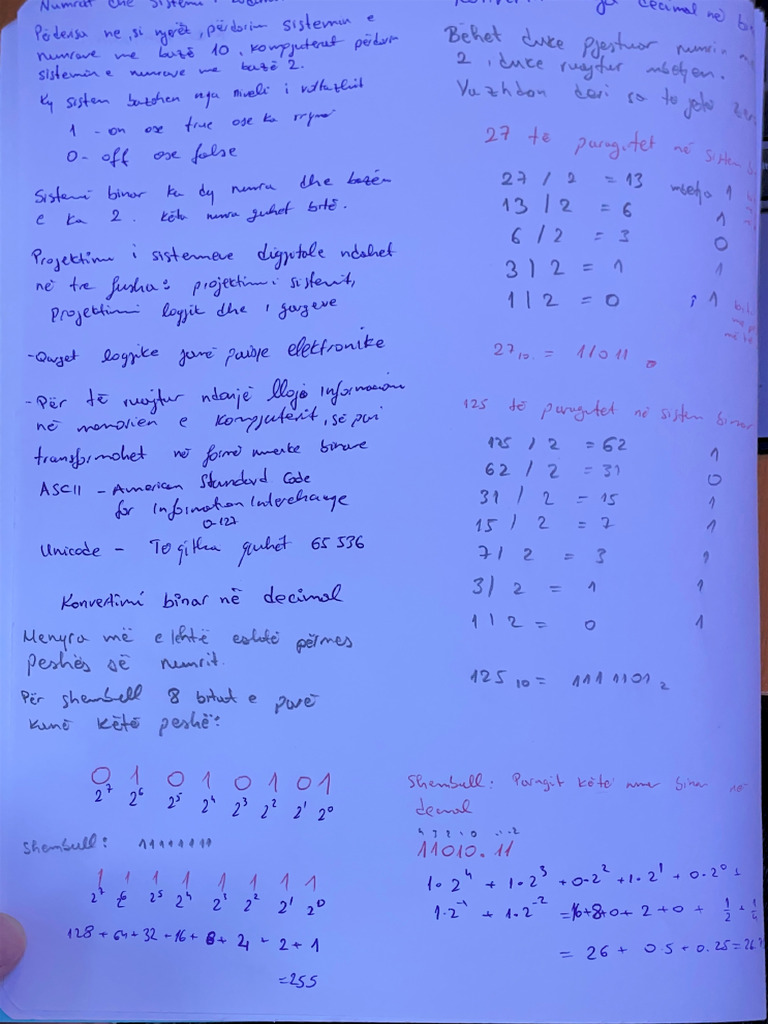 Numrat dhe Sistemi i
Përderisa ne, si njerëz, përdorim sistemin e
numrave me bazë 10, kompjuterat përdorin
sistemin e numrave me bazë 2.
Ky sistem bazohet nga niveli i voltazhit
1 - on ose true ose ka rrymë
0 - off ose false
Sistemi binar ka dy numra dhe bazën
e ka 2. këta numra quhet bitë.
Projektimi i sistemeve digjitale ndahet
në tre fusha: projektimi i sistemit,
Projektimi logjik dhe i qarqeve
- Qarqet logjike janë paisje elektronike
- Për të ruajtur ndonjë lloj informacion
në memorien e kompjuterit, së pari
transformohet në formë numerike binare
ASCII - American Standard Code
for Information Interchange
0-127
Unicode - Të gjitha quhet 65 536
Konvertimi binar në decimal
Menyra më e lehtë eshtë përmes
peshës së numrit.
Për shembell 8 bitat e parë
kanë këtë peshë:
0 1 0 1 0 1 0 1
2⁷ 2⁶ 2⁵ 2⁴ 2³ 2² 2¹ 2⁰
Shembull: 11111111
1 1 1 1 1 1 1 1
2⁷ 2⁶ 2⁵ 2⁴ 2³ 2² 2¹ 2⁰
128 + 64 + 32 + 16 + 8 + 4 + 2 + 1
= 255
nga decimal në
Bëhet duke pjestuar numrin me
2, duke ruajtur mbetjen.
Vazhdon deri sa të jetë
27 të paraqitet në sistem
27 / 2 = 13 mbetja 1
13 / 2 = 6 1
6 / 2 = 3 0
3 / 2 = 1 1
1 / 2 = 0 1
27₁₀ = 11011
125 të paraqitet në sistem binar
125 / 2 = 62 1
62 / 2 = 31 0
31 / 2 = 15 1
15 / 2 = 7 1
7 / 2 = 3 1
3 / 2 = 1 1
1 / 2 = 0 1
125₁₀ = 1111101₂
Shembull: Paraqit këtë numer binar në
decimal
4 3 2 1 0 -1 -2
11010.11
1·2⁴ + 1·2³ + 0·2² + 1·2¹ + 0·2⁰ +
1·2⁻¹ + 1·2⁻² = 16+8+0+2+0 + 1/2 + 1/4
= 26 + 0.5 + 0.25 = 26.